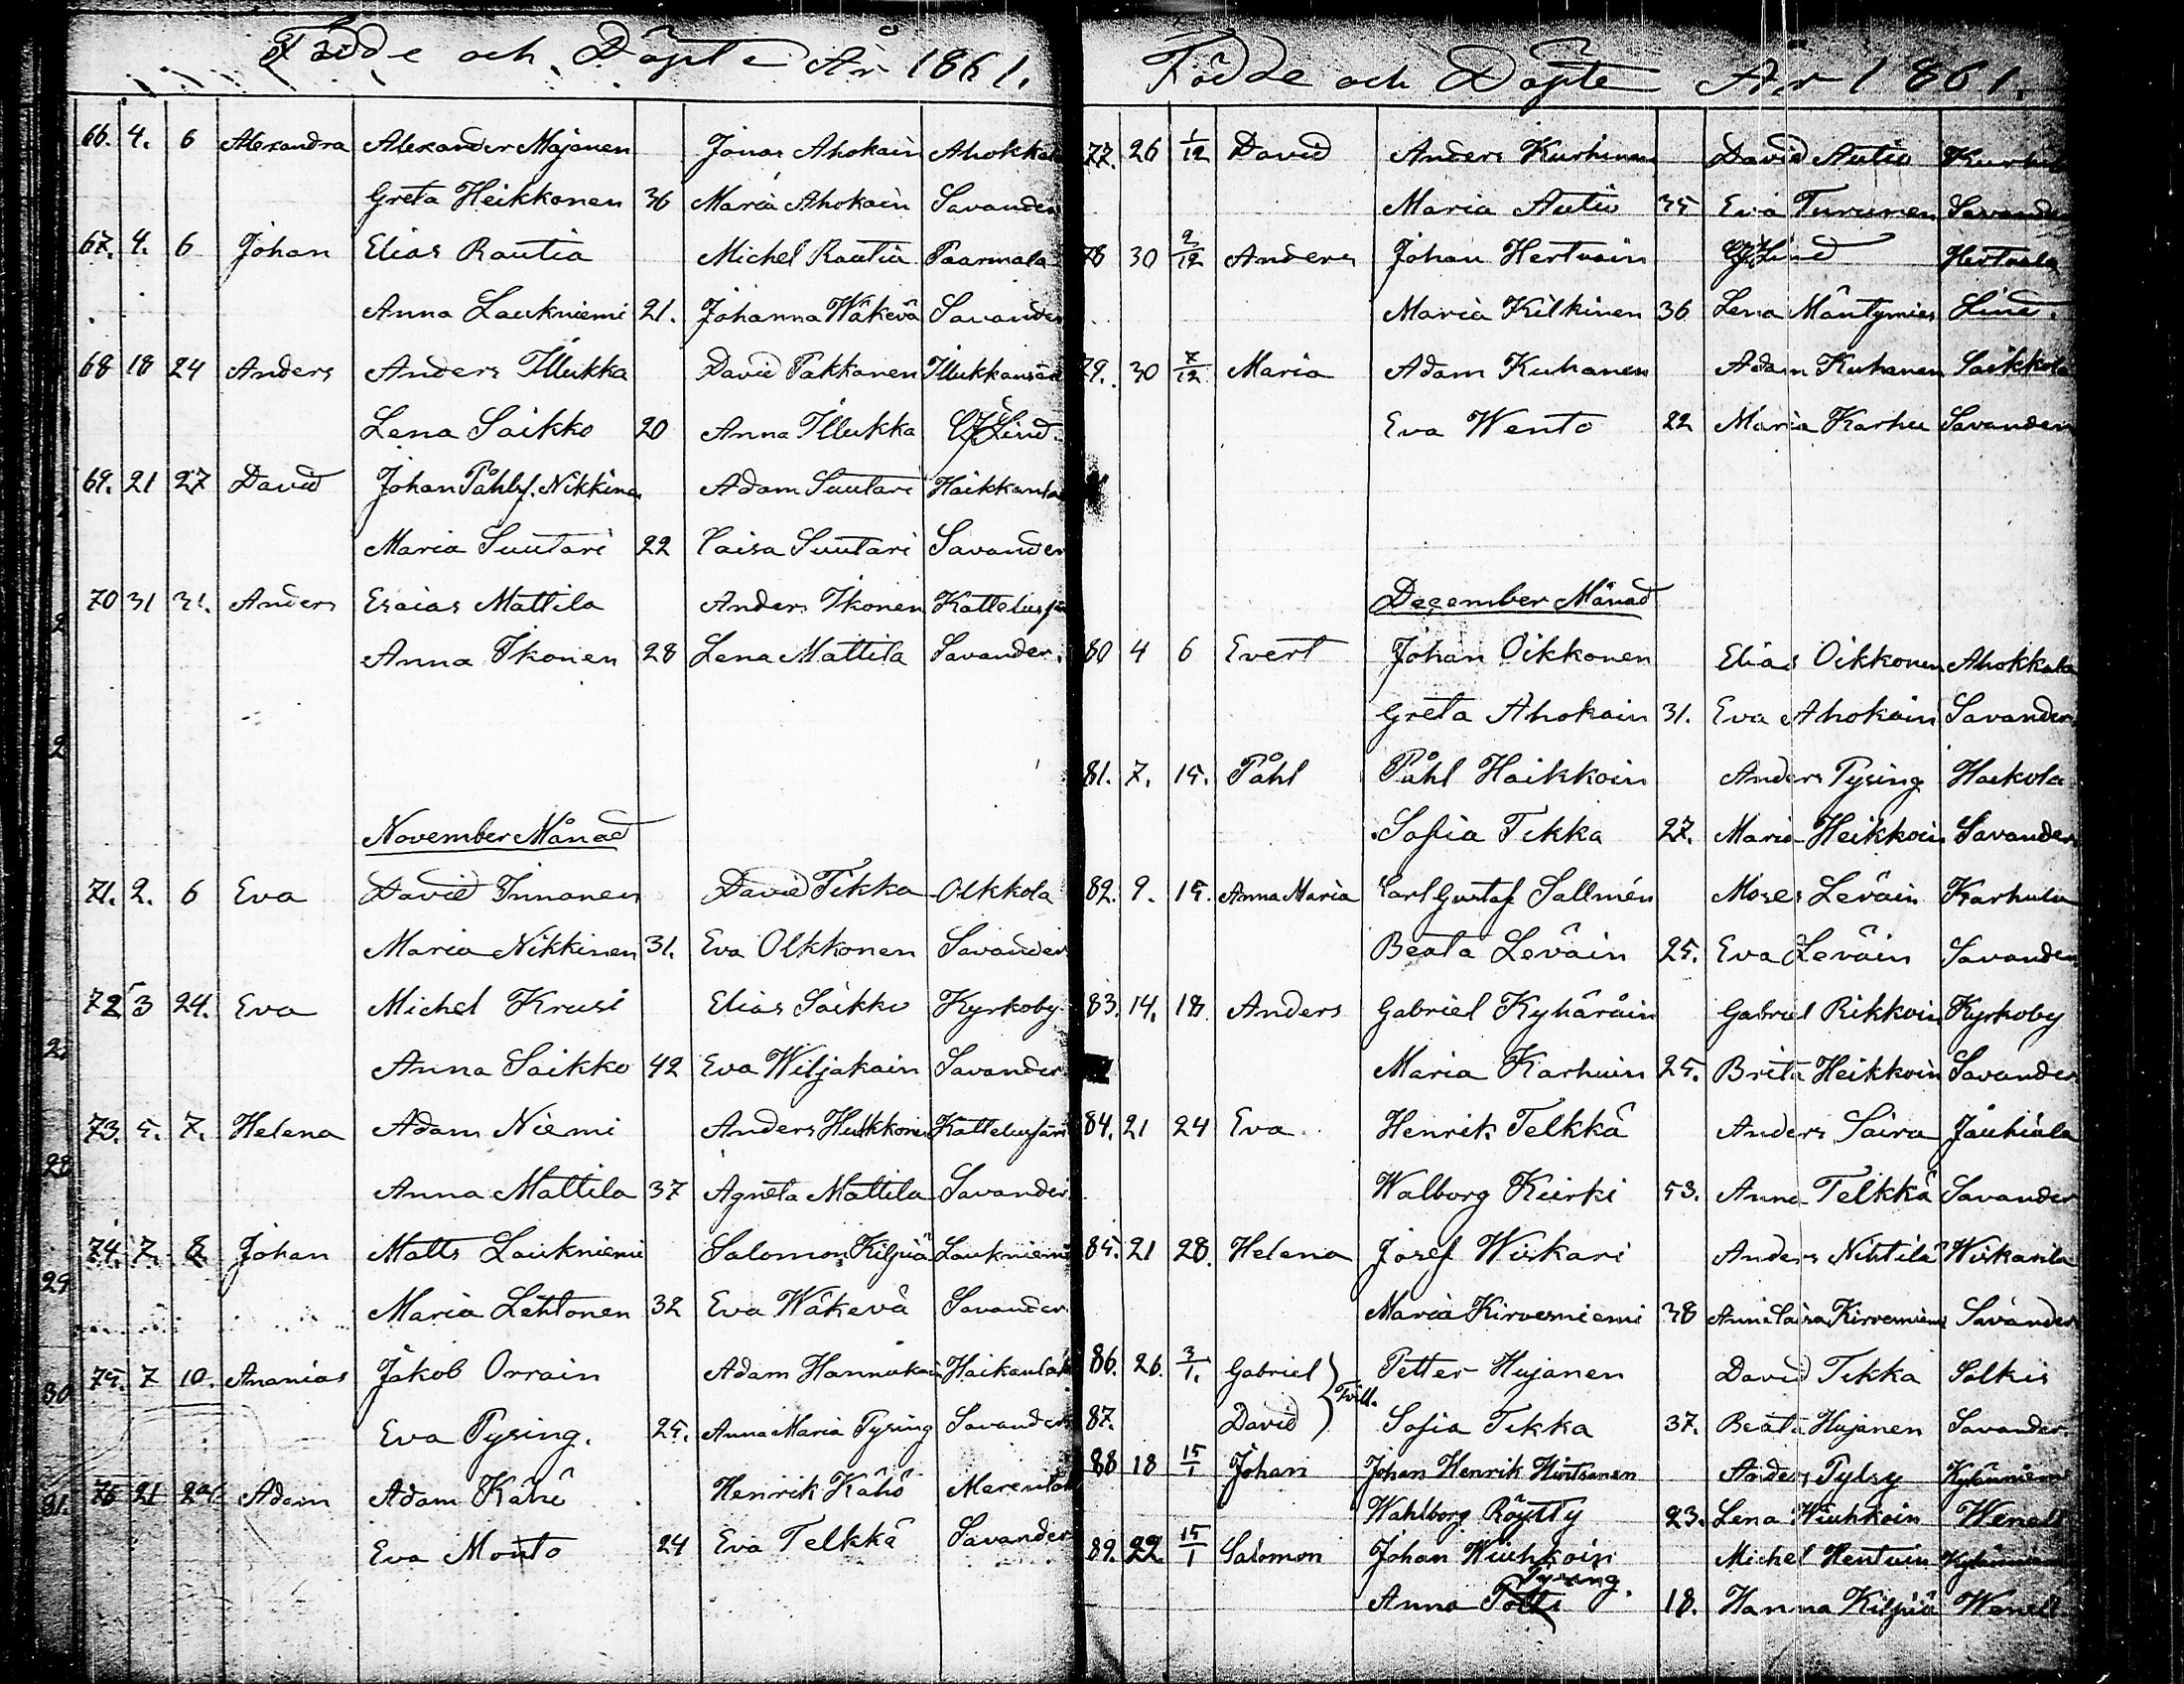 Födde och Döpte År 1861.
66. 4. 6 Alexandra Alexander Majanen Jonas Ahokain
Greta Heikkonen 36 Maria Ahokain Savander
67. 4. 6 Johan Elias Rautia Michel Rautia Paarmala
Anna Laukniemi 21. Johanna Wäkevä Savander
68 18 24 Anders Anders Illukka David Pakkanen
Lena Saikko 20 Anna Illukka Lind.
69. 21 27 David Johan Påhlsf. Nikkinen Adam Suutari
Maria Suutari 22 Caisa Suutari Savander
70 31 31. Anders Esaias Mattila Anders Ikonen
Anna Ikonen 28 Lena Mattila Savander.
November Månad
71. 2. 6 Eva David Innanen David Tikka Olkkola
Maria Nikkinen 31. Eva Olkkonen Savander
72 3 24. Eva Michel Krusi Elias Saikko Kyrkoby
Anna Saikko 42 Eva Wiljakain Savander
73. 5. 7. Helena Adam Niemi Anders
Anna Mattila 37 Agneta Mattila Savander
74. 7. 8 Johan Matts Laukniemi Salomon Kilpiä Laukniemi
Maria Lehtonen 32 Eva Wäkevä Savander
75. 7 10. Ananias Jakob Orrain Adam Hannukain
Eva Pysing. 25. Anna Maria Pysing Savander
76 21 24 Adam Adam Kähö Henrik Kähö
Eva Monto 24 Eva Telkkä Savander
Födde och Döpte År 1861.
77. 26 1/12 David Anders Kurhinen David Autio
Maria Autio 35 Eva Turunen Savander
78 30 2/12 Anders Johan Hertuain Lind Hertuala
Maria Kilkinen 36 Lena Mäntymies Lind.
79. 30 7/12 Maria Adam Kuhanen Adam Kuhanen Saikkola
Eva Wento 22 Maria Karhu Savander
December Månad
80 4 6 Evert Johan Oikkonen Elias Oikkonen Ahokkala
Greta Ahokain 31. Eva Ahokain Savander
81. 7. 15. Påhl Påhl Haikkoin Anders Pysing Haikola
Sofia Tikka 27. Maria Heikkoin Savander
82. 9. 15. Anna Maria Carl Gustaf Sallmén Moses Leväin Karhula
Beata Leväin 25. Eva Leväin Savander
83. 14. 18. Anders Gabriel Kyhäräin Gabriel Rikkoin Kyrkoby
Maria Karhuin 25. Brita Heikkoin Savander
84. 21 24 Eva Henrik Telkkä Anders Saira Jäuhiala
Walborg Kiirki 53. Anna Telkkä Savander
85. 21 28. Helena Josef Wirkari Anders Nihtilä
Maria Kirvesniemi 38 Anna Caisa Kirvesniemi Savander
86. 26. 3/1. Gabriel Petter Hujanen David Tikka Solkis
Tvill.
87. David Sofia Tikka 37. Beata Hujanen Savander
88 18 15/1 Johan Johan Henrik Hirtsanen Anders Pylsy Kylänniemi
Wahlborg Röytty 23. Lena Wiuhkoin Wenell
89. 22. 15/1 Salomon Johan Wiuhkoin Michel Hentuin Kylänniemi
Pysing.
Anna Potti 18. Hanna Kilpiä Wenell